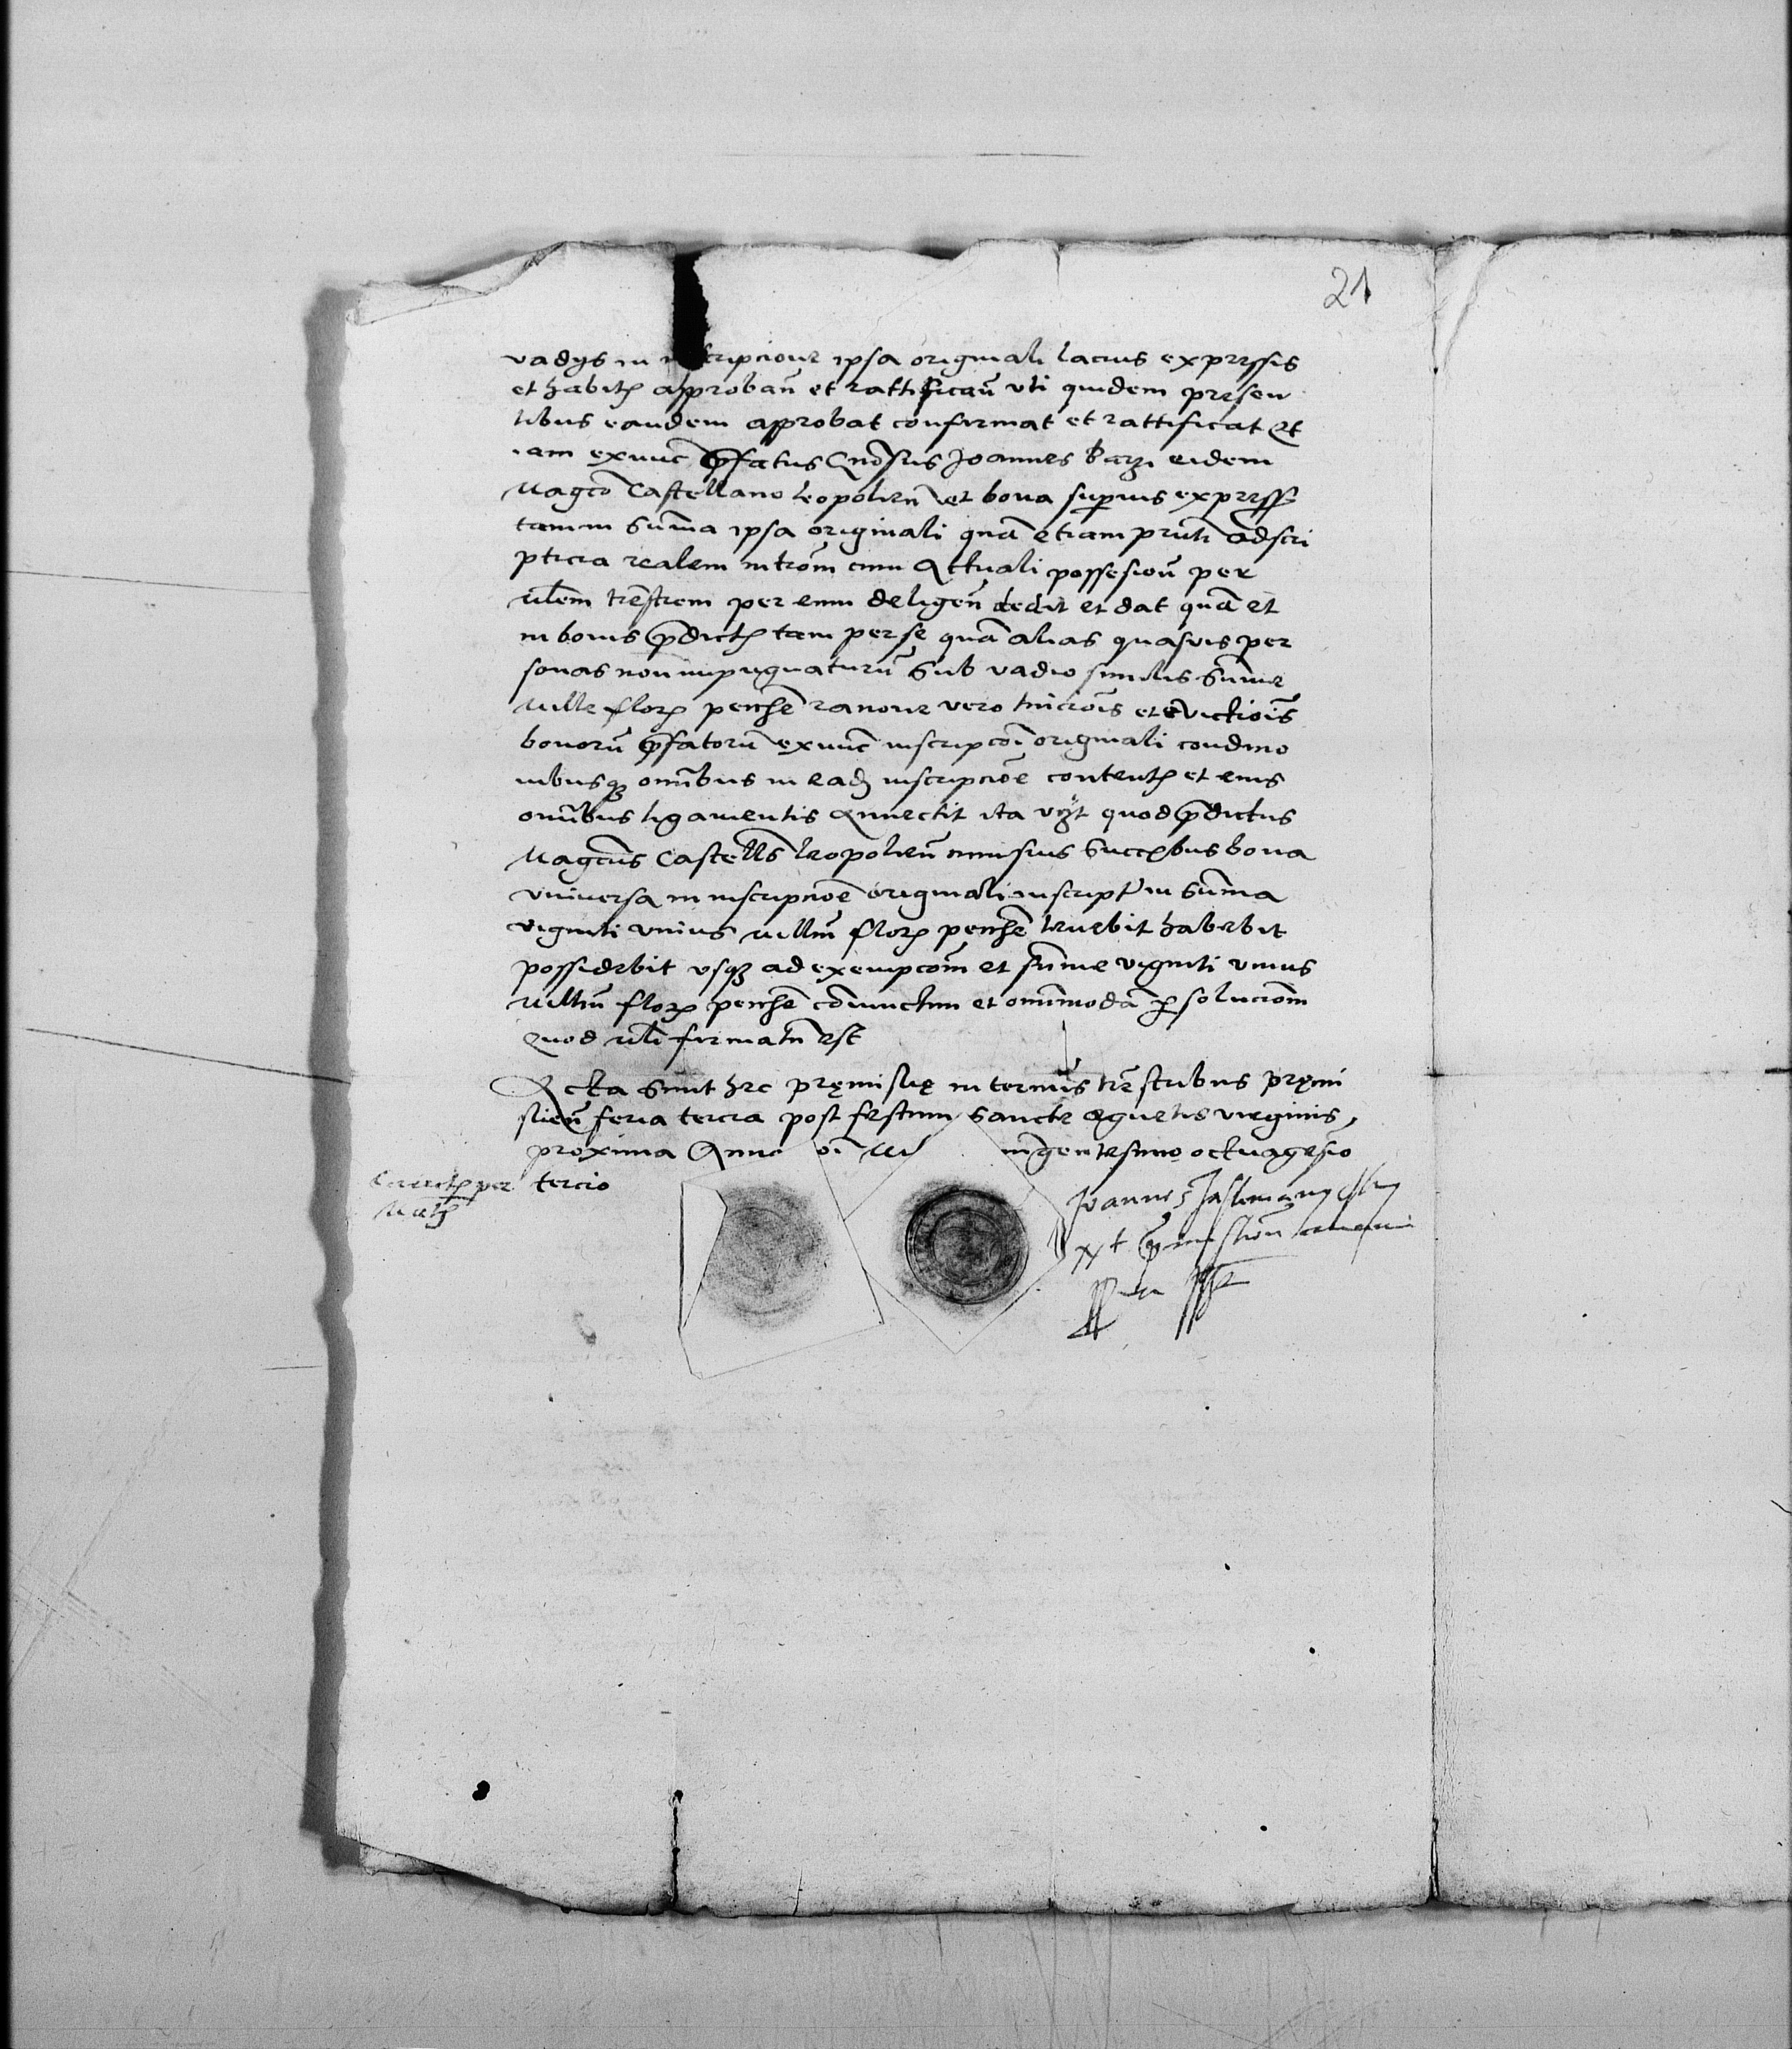 21
vadys in inscripcione ipsa originali lacius expressis
et habitis approbań et rattificań uti quidem presen
tibus eandem approbat confirmat et rattificat Et
iam exnunc pfatus Gnosus Joannes Barzi eidem
Magco Castellano leopolien et bona superius express
tam in summa ipsa originali quã etiam pnti adscri
pticia realem intrôm cum Actuali possesioñ per
mlem trestrem per eum deligeñ dedit et dat quã et
in bonis pdictis tam per se quã alias quasvis per
sonas non impugnaturũ sub vadio similis summe
Mille flor pechsē ranone vero Intrcois et evictiois
bonorũ pfatorũ exnunc inscripcoi originali condicio
nibusq omibus in eadz inscripcioē contentis et eius
omibus ligamentis Annectit ita vzt quod pdictus
Magcus Castells leopolieñ cum suis Succesbus bona
universa in inscripcioē originali inscript in Summa
viginti unius milliũ flor peschē tenebit habebit
possidebit usq ad exempcom et summe viginti unius
milliũ flor peschē coniunctim et omimodã p solucom
Quod mli firmatũ est
Acta sunt hec pręmislię in termis tre stribus pręmi
slieñ feria tercia post festum Sancte Agnetis virginis
proxima Anno Mi ingentesimo octuagesio
tercio
per
Joannes